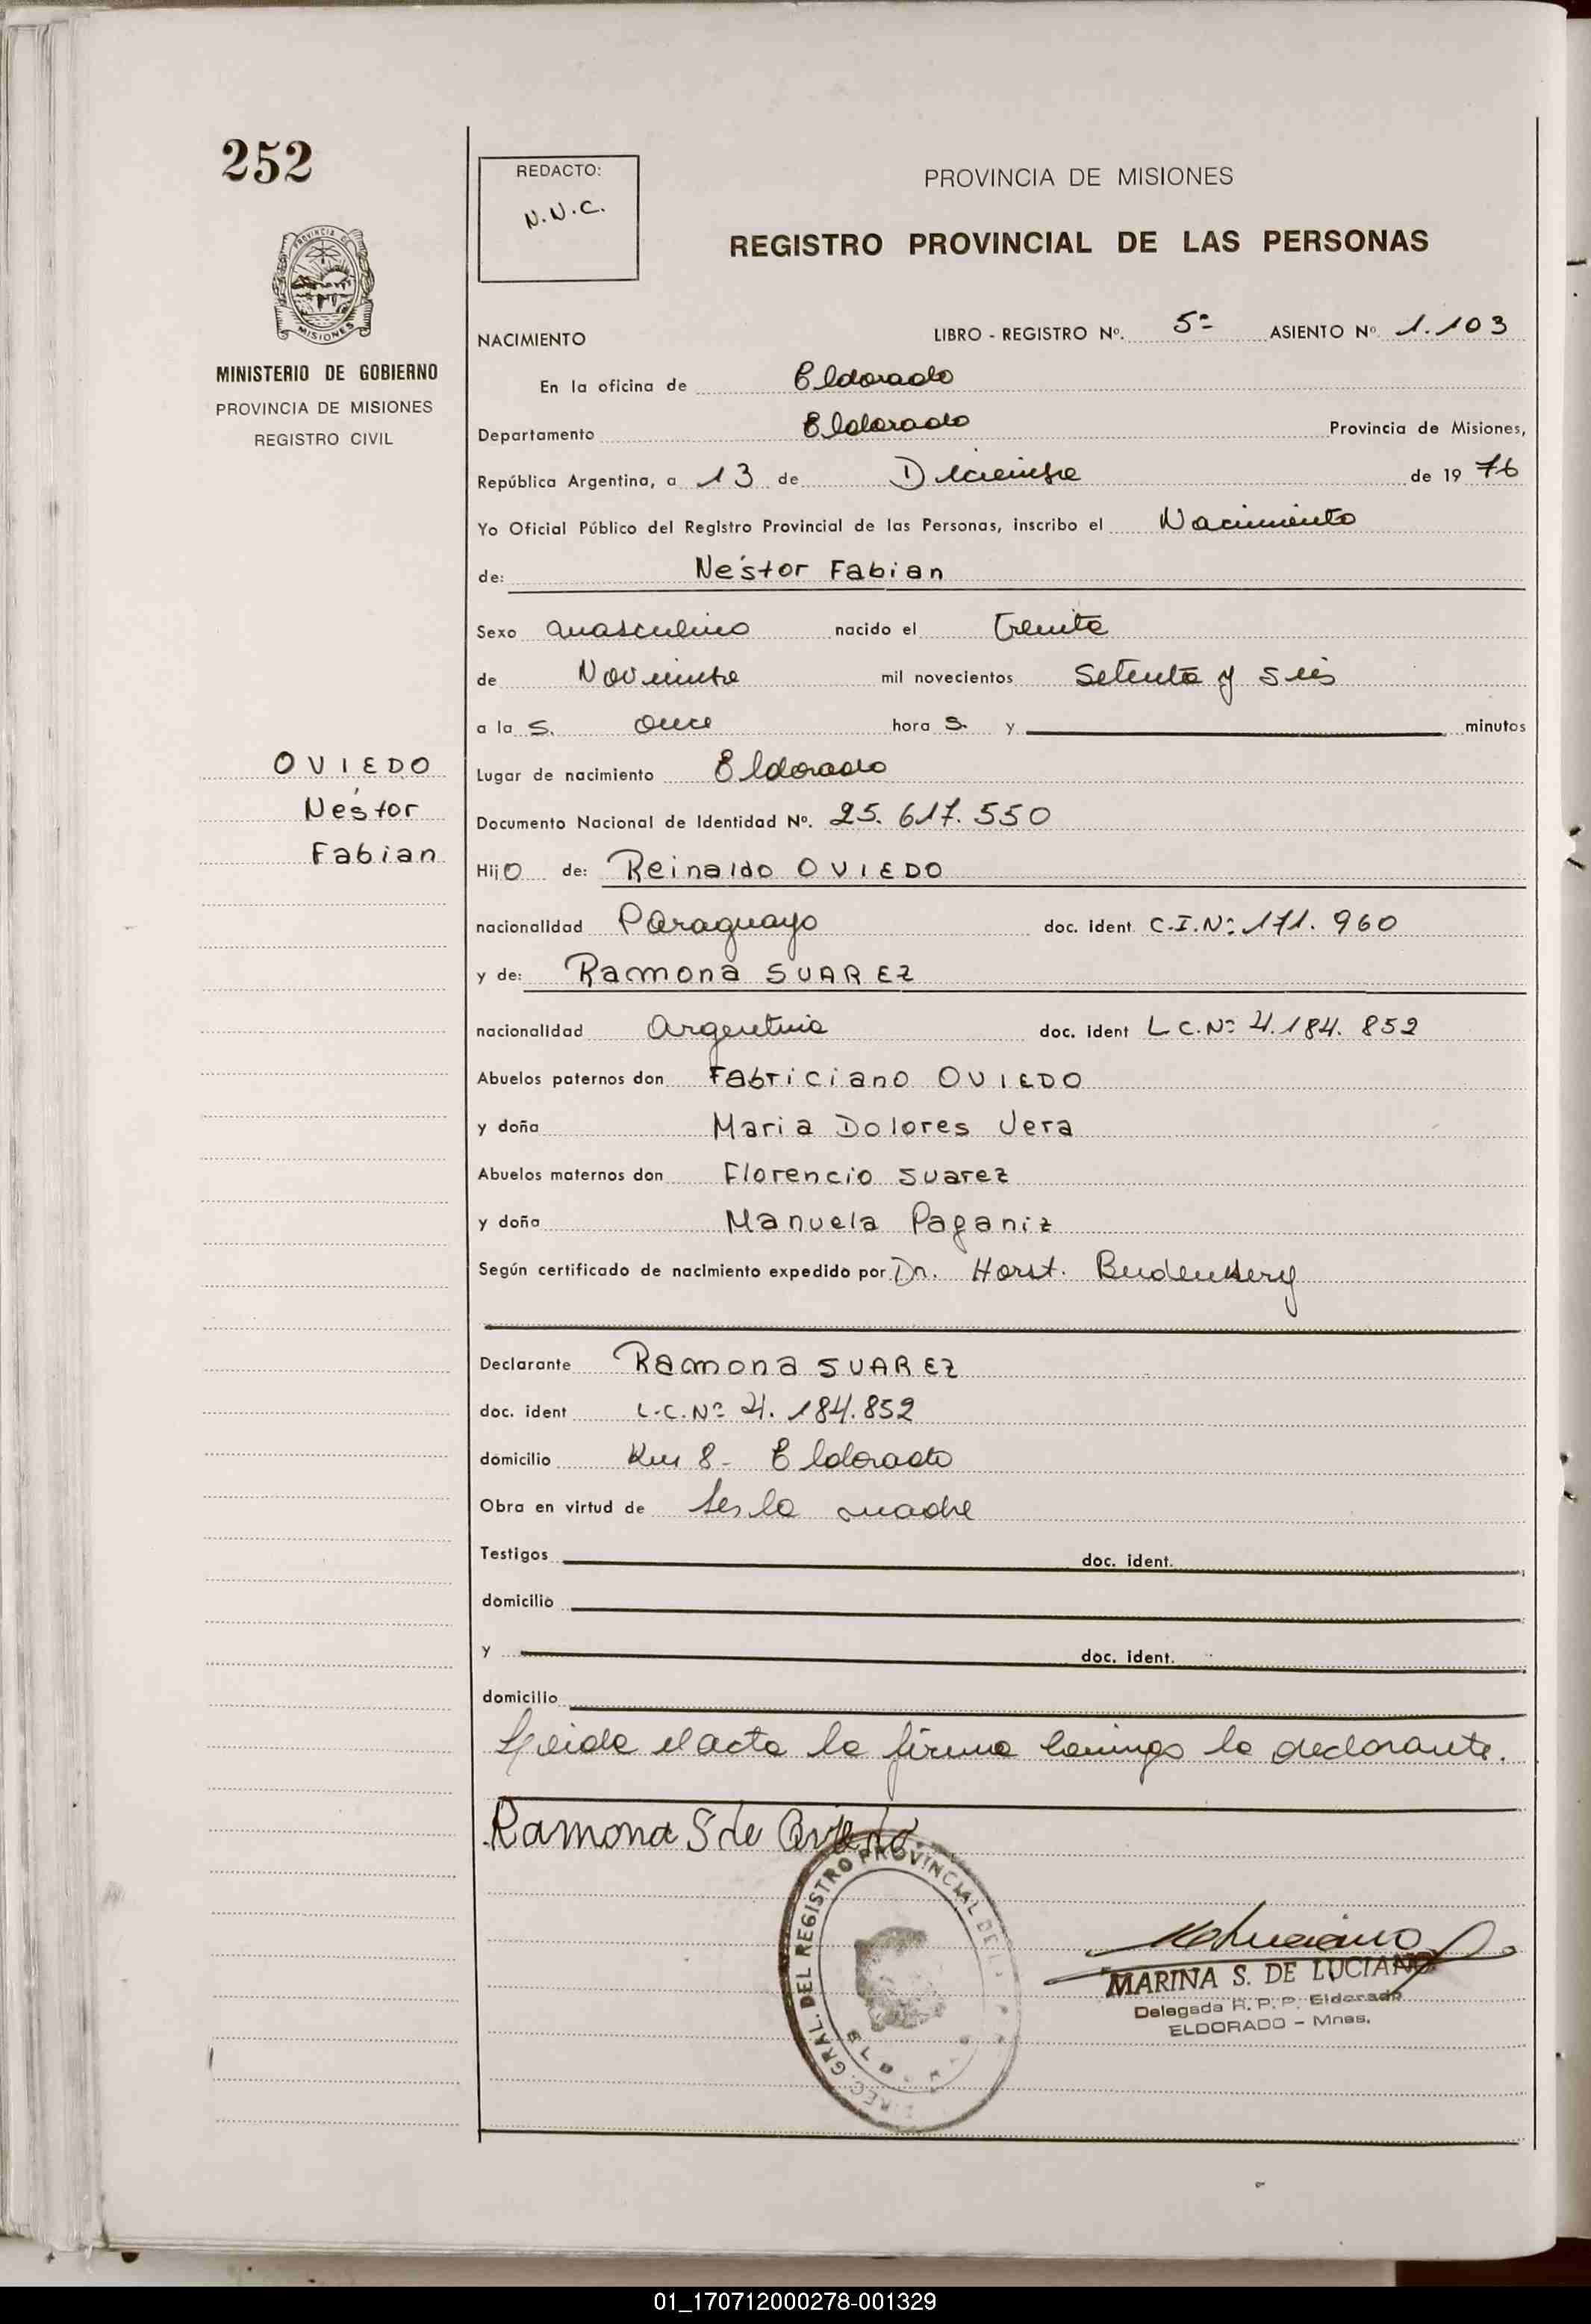 252
PROVINCIA DE MISIONES
MINISTERIO DE GOBIERNO
PROVINCIA DE MISIONES
REGISTRO CIVIL
OVIEDO
Néstor
Fabian
REDACTO:
N.N.C.
PROVINCIA DE MISIONES
REGISTRO PROVINCIAL DE LAS PERSONAS
NACIMIENTO LIBRO - REGISTRO Nº. 5º ASIENTO Nº 1.103
En la oficina de Eldorado
Departamento Eldorado Provincia de Misiones,
República Argentina, a 13 de Diciembre de 19 76
Yo Oficial Público del Registro Provincial de las Personas, inscribo el Nacimiento
de: Néstor Fabian
Sexo masculino nacido el treinta
de Noviembre mil novecientos setenta y seis
a la s. once hora s. y minutos
Lugar de nacimiento Eldorado
Documento Nacional de Identidad Nº. 25.617.550
Hijo de: Reinaldo OVIEDO
nacionalidad Paraguayo doc. ident. C.I.Nº 171.960
y de: Ramona SUAREZ
nacionalidad Argentina doc. ident L.C.Nº 4.184.852
Abuelos paternos don Fabriciano OVIEDO
y doña Maria Dolores Vera
Abuelos maternos don Florencio Suarez
y doña Manuela Paganiz
Según certificado de nacimiento expedido por Dr. Horst.
Declarante Ramona SUAREZ
doc. ident L.C.Nº 4.184.852
domicilio Km 8 - Eldorado
Obra en virtud de ser la madre
Testigos doc. ident.
domicilio
y doc. ident.
domicilio
Leida el acta la firma conmigo la declarante.
Ramona S de Oviedo
GRAL. DEL REGISTRO PROVINCIAL DE
MARINA S. DE LUCIANO
Delegada R. P. P. Eldorado
ELDORADO - Mnes.
01_170712000278-001329